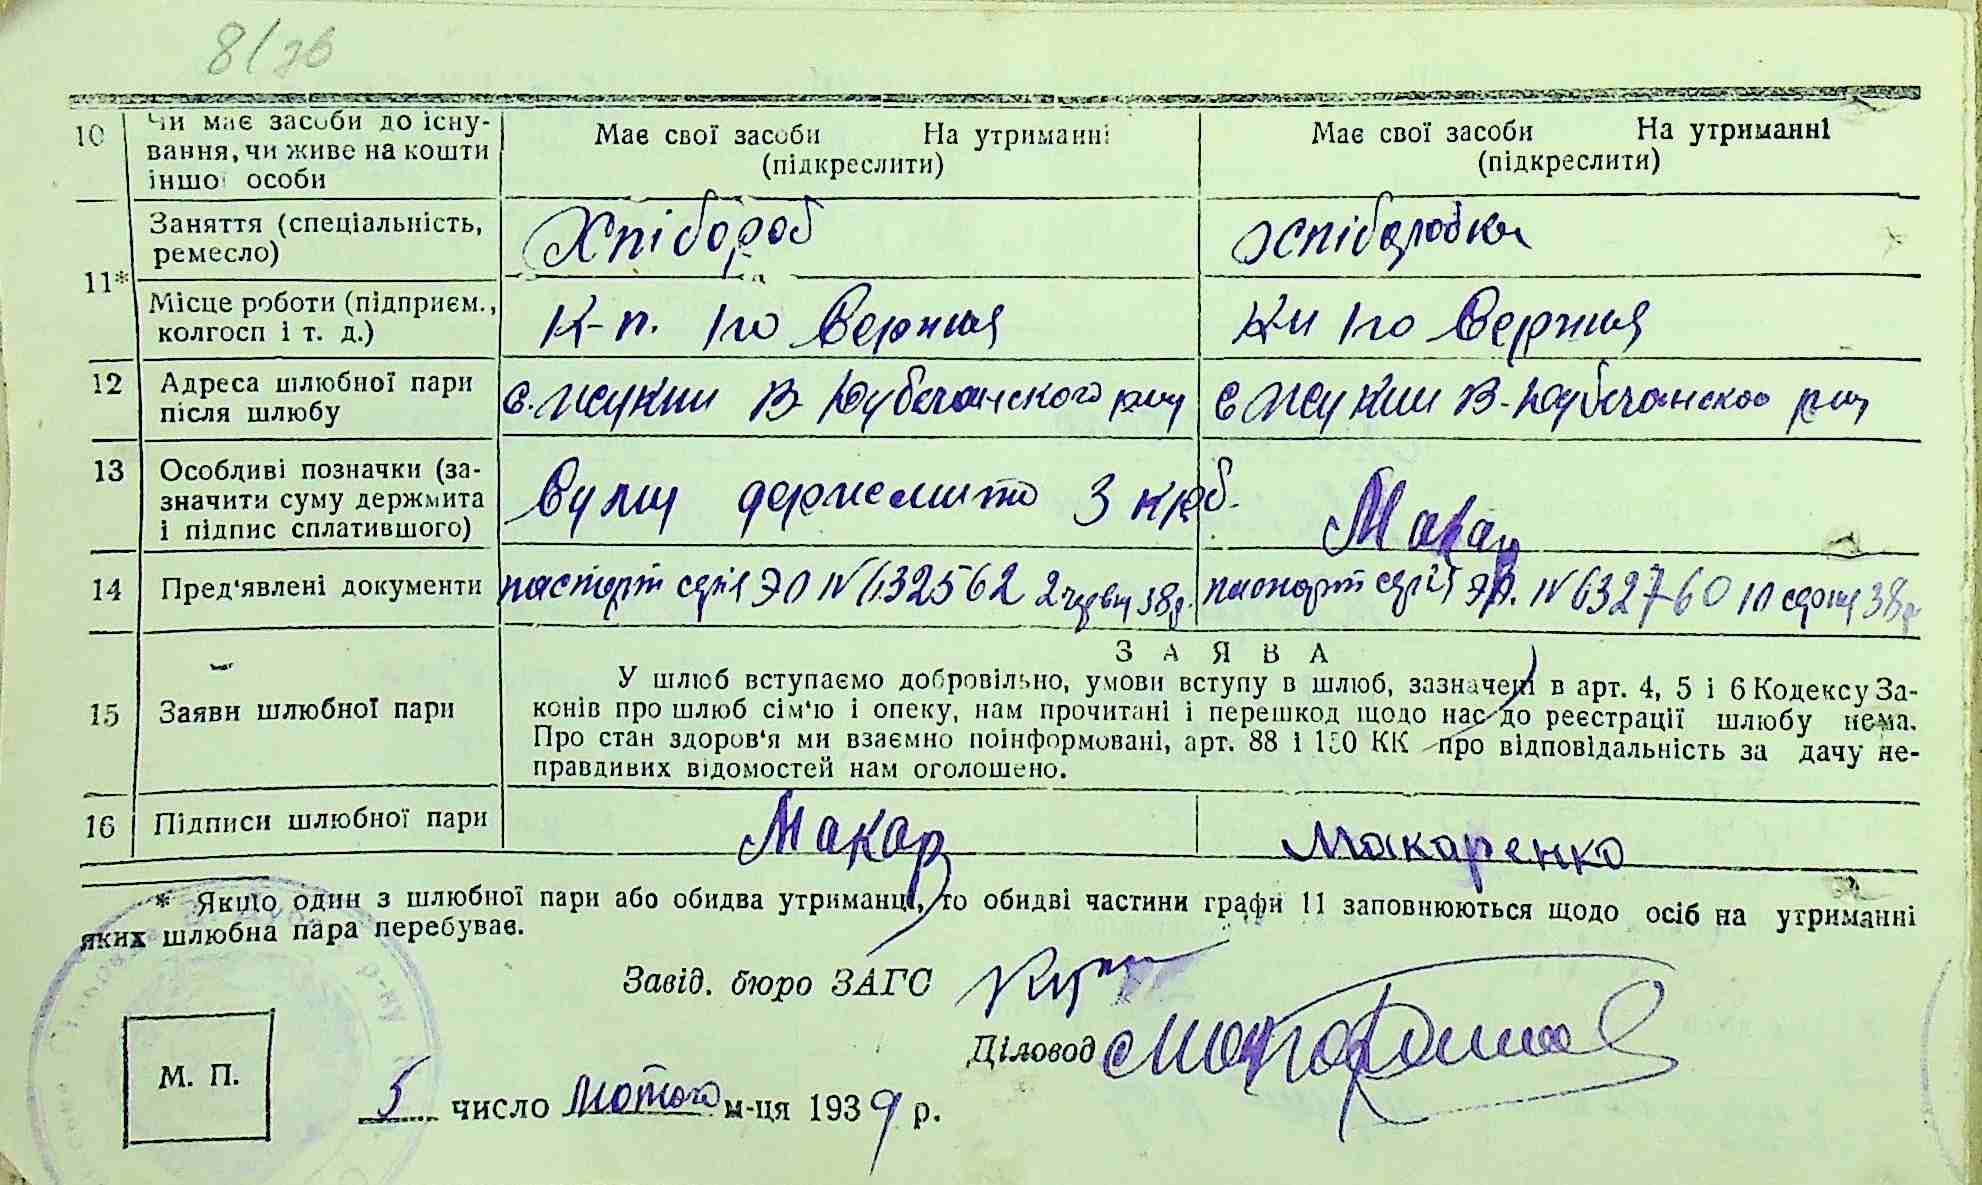 8/зв
10 Чи має засоби до існу-
вання, чи живе на кошти
іншої особи
Має свої засоби На утриманні
(підкреслити)
Має свої засоби На утриманні
(підкреслити)
11*
Заняття (спеціальність,
ремесло)
Хлібороб
хліборобка
Місце роботи (підприєм.,
колгосп і т. д.)
К-п. 1го Серпня
Кп 1го Серпня
12 Адреса шлюбної пари
після шлюбу
с. Жукин В-Дубечанского рну
с Жукин В-Дубечанского рну
13 Особливі позначки (за-
значити суму держмита
і підпис сплатившого)
Суму держмито 3 крб.
Макар
14 Пред'явлені документи
паспорт серія ЭО N 632562 2 червн 38р.
паспорт серія ЭО. N 632760 38р
15 Заяви шлюбної пари
ЗАЯВА
У шлюб вступаємо добровільно, умови вступу в шлюб, зазначені в арт. 4, 5 і 6 Кодексу За-
конів про шлюб сім'ю і опеку, нам прочитані і перешкод щодо нас до реєстрації шлюбу нема.
Про стан здоров'я ми взаємно поінформовані, арт. 88 і 150 КК про відповідальність за дачу не-
правдивих відомостей нам оголошено.
16 Підписи шлюбної пари
Макар
Макаренко
* Якщо один з шлюбної пари або обидва утриманці, то обидві частини графи 11 заповнюються щодо осіб на утриманні
яких шлюбна пара перебуває.
Завід. бюро ЗАГС
Діловод
М. П.
5 число Лютого м-ця 1939 р.